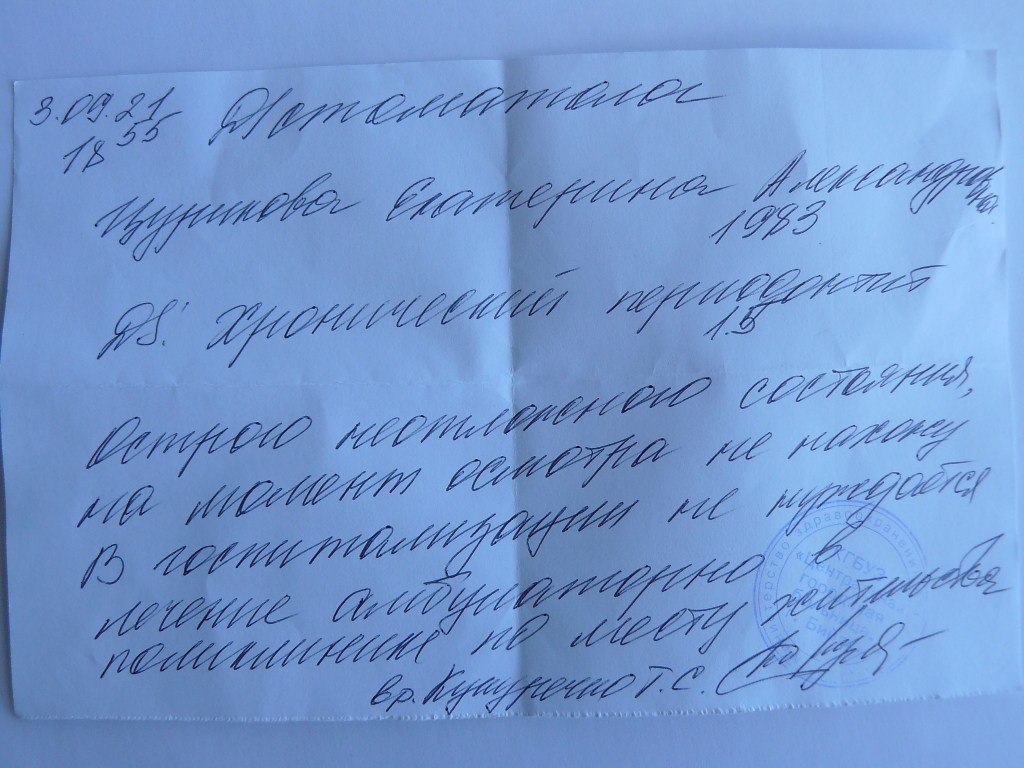 3.09.21 Ds стоматолог
18 55
Цуникова Екатерина Александровна
1983
Ds: Хронический периодонтит
1.5
Острого неотложного состояния,
на момент осмотра не нахожу
В госпитализации не нуждается
лечение амбулаторно в
поликлинике по месту жительства
вр. Т.С.
Министерство здравоохранения
КГБУЗ